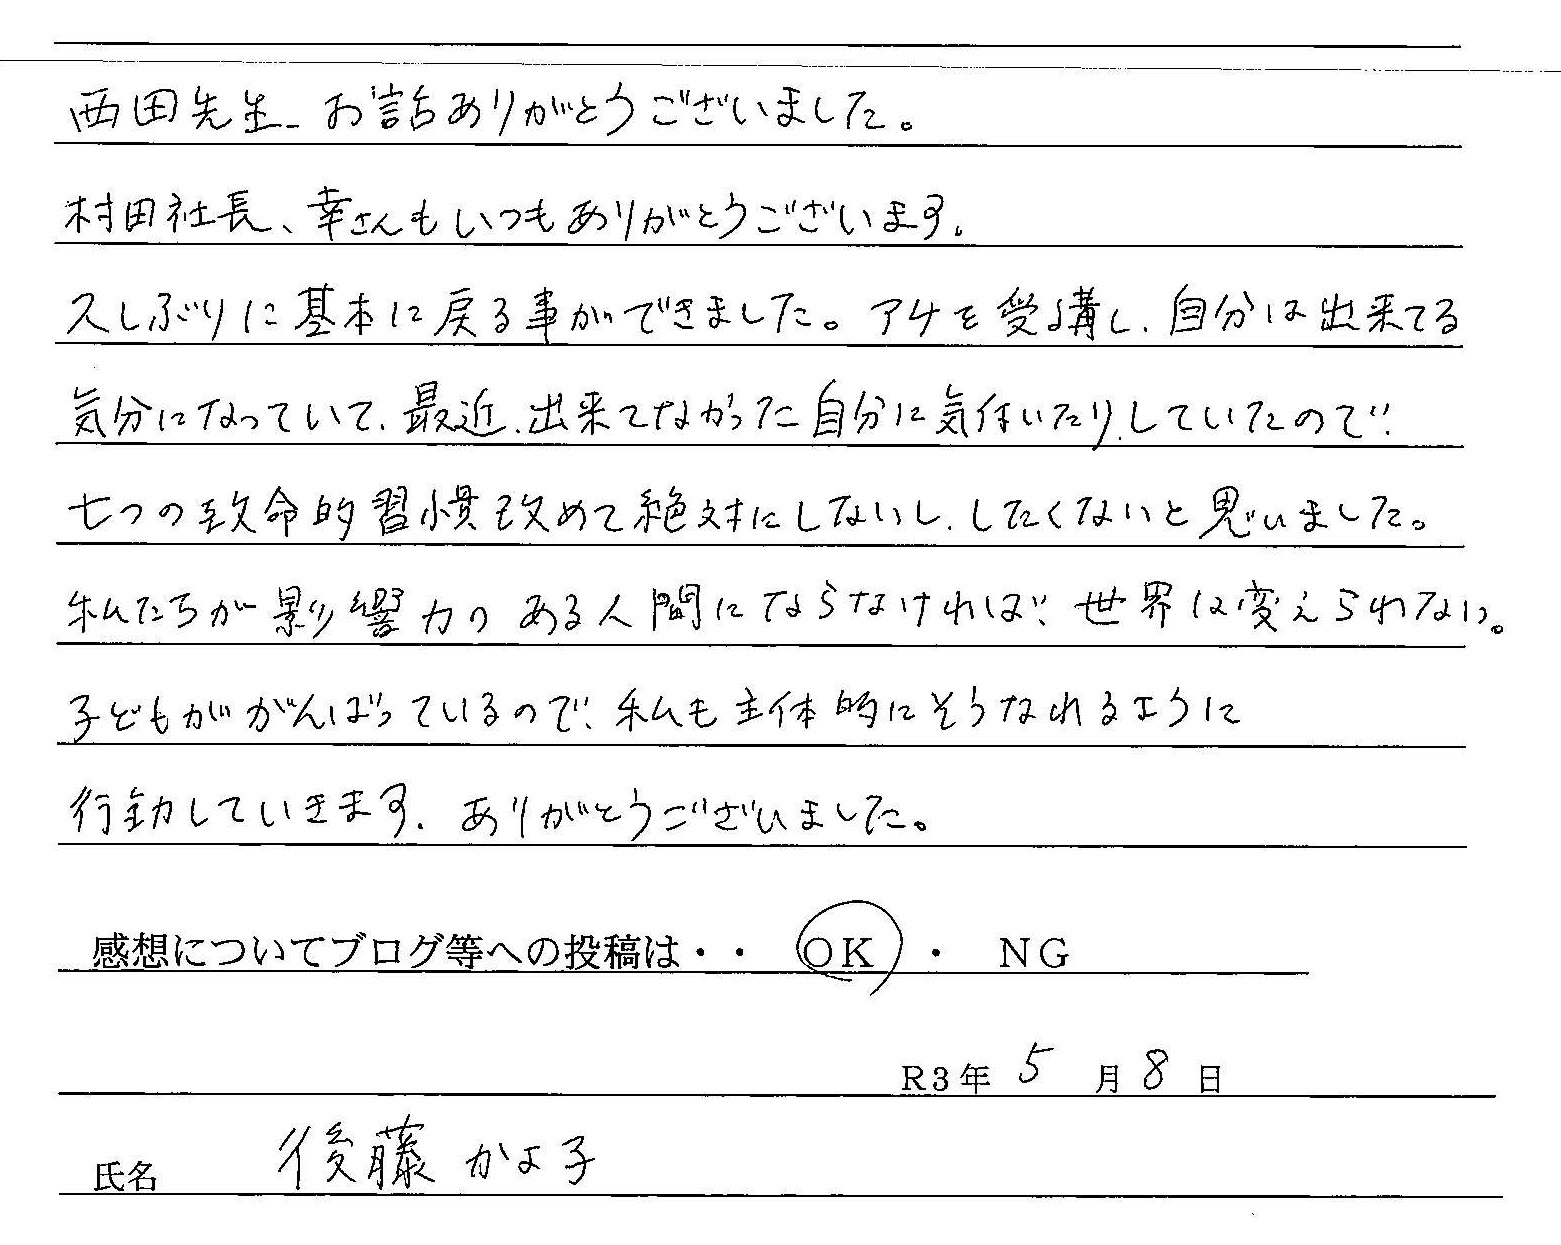 西田先生、お話ありがとうございました。
村田社長、幸さんもいつもありがとうございます。
久しぶりに基本に戻る事ができました。アチを受講し、自分は出来てる
気分になっていて、最近、出来てなかった自分に気付いたりしていたので、
七つの致命的習慣改めて絶対にしないし、したくないと思いました。
私たちが影響力のある人間にならなければ、世界は変えられない。
子どもががんばっているので、私も主体的にそうなれるように
行動していきます。ありがとうございました。
感想についてブログ等への投稿は・・ OK ・ NG
R3年 5 月 8 日
氏名 後藤 かよ子